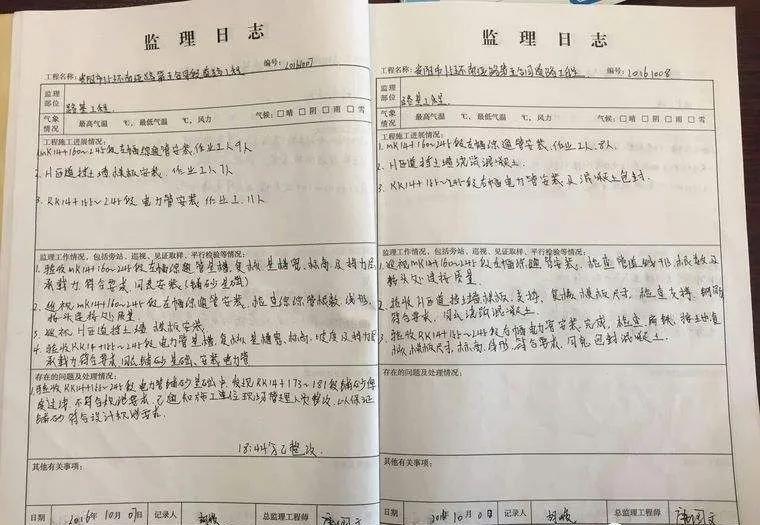 监理日志
工程名称：
编号：20161007
监理部位
路基工程
气象情况
最高气温 ℃，最低气温 ℃，风力 气候：□晴 □阴 □雨 □雪
工程施工进展情况：
1. mK14+160~245段左幅综通管安装，作业工人9人
2. H匝道挡土墙模板安装，作业工人7人
3. RK14+155~245段电力管安装，作业工人11人
监理工作情况，包括旁站、巡视、见证取样、平行检验等情况：
1. 验收mK14+160~245段左幅综通管基槽，复核基槽宽、标高及
承载力符合要求，同意安装
2. 巡视mK14+160~245段左幅综通管安装，检查综通管根数、线形，
接头连接处质量
3. 巡视H匝道挡土墙模板安装
4. 验收RK14+155~245段电力管基槽，复核基槽宽、标高、坡度及
承载力符合要求，同意铺砂基础、安装电力管
存在的问题及处理情况：
1. 验收RK14+155~245段电力管铺砂基础中，发现RK14+173~181段铺砂
不符合规范要求，已通知施工单位现场管理人员整改，以保证
铺砂符合设计和规范要求。
18:44分已整改。
其他有关事项：
日期
2016年10月07日
记录人
总监理工程师
监理日志
工程名称：
编号：20161008
监理部位
路基工程
气象情况
最高气温 ℃，最低气温 ℃，风力 气候：□晴 □阴 □雨 □雪
工程施工进展情况：
1. mK14+160~245段左幅综通管安装，作业工人8人。
2. H匝道挡土墙浇筑混凝土。
3. RK14+155~245段右幅电力管安装及混凝土包封。
监理工作情况，包括旁站、巡视、见证取样、平行检验等情况：
1. 巡视mK14+160~245段左幅综通管安装，检查管道线形、根数及
接头处连接质量。
2. 验收H匝道挡土墙模板、支撑，复核模板尺寸，检查支撑、
符合要求，同意浇筑混凝土。
3. 验收RK14+155~245段右幅电力管安装完成，检查
模板尺寸、标高、符合要求，同意包封混凝土。
存在的问题及处理情况：
其他有关事项：
日期
记录人
总监理工程师